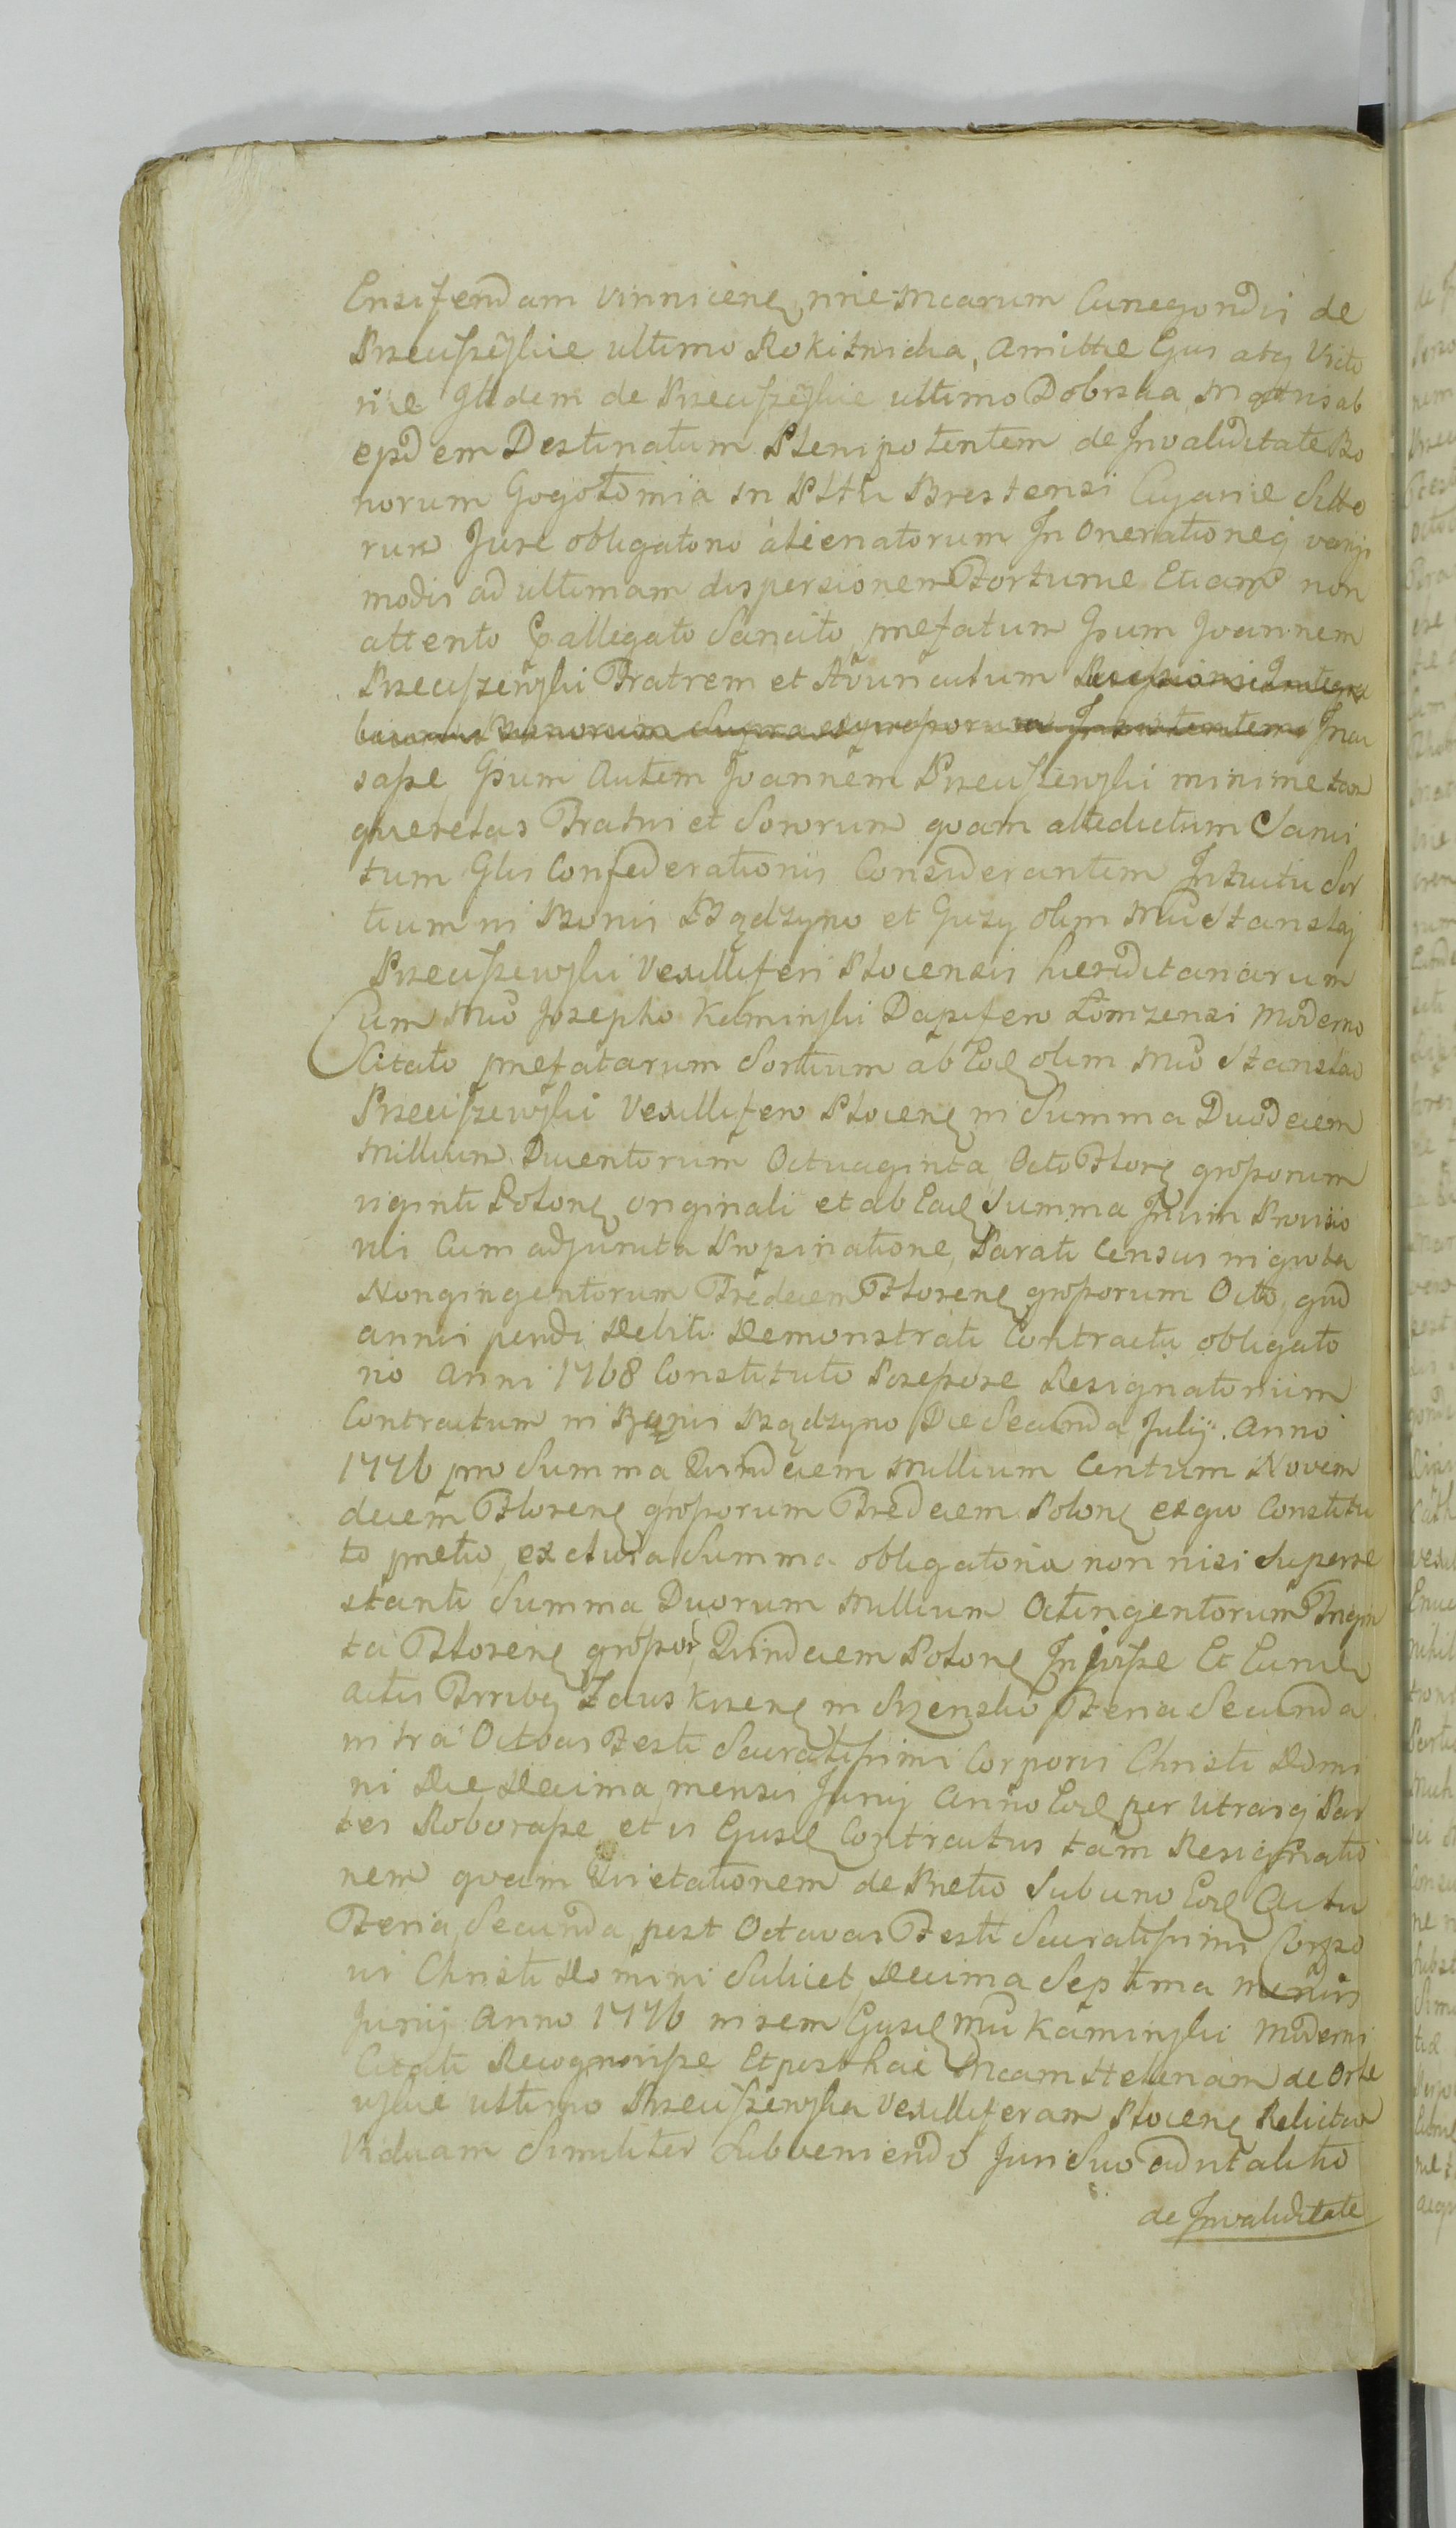 Ensiferidam Vinnicene nne Mcarum Cunegondis de
Przeciszeyskie ultimo Rokitnicka, Amittæ Ejus atq Victo
riæ Gttdem de Przeciszeyskie ultimo Dobrska Matris ab
epdem Destinatum Plenipotentem de Invaliditate Bo
norum Gogołomia in Plttu Brestensi Cujaviæ Sitto
rum Jure obligatorio alienatorum In Onerationeq varijs
modis ad ultimam dispersionem Fortunæ Etiam non
attento allegato Sancito, præfatum Ipsum Joannem
Przeciszewski Fratrem et Avunculum
Bonorum Supra Incu
sasse Ipsum Autem Joannem Przeciszewski minime tam
querelas Fratris et Sororum quam attedictum Sanci
tum Glis Confederationis Considerantem Intuitu Sor
tium in Bonis Bądzyno et Guzy olim Mci Stanislaj
Przeciszewski Vexilliferi Plocensis hæreditariarum
Cum Mco Josepho Kaminski Dapifero Łomzensi Moderno
Citato præfatarum Sortium ab Eod olim Mco Stanislao
Przeciszewski Vexillifero Plocene in Summa Duodecim
Millium Ducentorum Octuaginta Octo Flore grossorum
viginti Polone originali et ab Ead Summa Juxim Provisio
nis Cum adjuncta Propinatione, Parati Census in quota
Nongingentorum Tredecim Florene grossorum Octo, quod
annis pendi Debiti Demonstrati Contractu obligato
rio Anni 1768 Constituto Possessore Resignatorium
Contractum in Bonis Bądzyno Die Secunda Julij Anno
1776 pro Summa Quindecim Millium Centum Novem
decim Florene grossorum Tredecim Polone ex quo Constitu
to pretio, ex ctura Summa obligatoria non nisi Superex
stanti Summa Duorum Millium Octingentorum Trigin
ta Florene grossor Quindecim Polone Injvisse Et Eund
actis Frribq Zauskrzene in Srzensko Feria Secunda
intra Octavas Festi Sacratissimi Corporis Christi Domi
ni Die Decima mensis Junij Anno Eod per Utrasq Par
tes Roborasse et is Ejusd Contractus tam Resignatio
nem quam Quietationem de Pretio Sub uno Eod Actu
Feria Secunda post Octavas Festi Sacratissimi Corpo
ris Christi Domini Scilicet Decima Septima Mensis
Junij Anno 1776 in rem Ejusd Mci Kaminski Moderni
Citati Recognovisse Et post hac Mcam Helenam de Orle
wskie ultimo Przeciszewska Vexilliferam Plocene Relictam
Viduam Similiter Subveniendo Juri Suo advitalitio
de Invaliditate